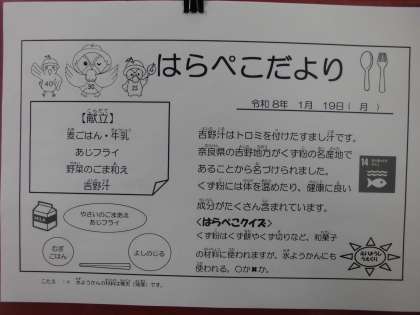 はらぺこだより
令和８年　１月　１９日（月）
【献立】
麦ごはん・牛乳
あじフライ
野菜のごま和え
吉野汁
吉野汁はトロミを付けたすまし汁です。
奈良県の吉野地方がくず粉の名産地で
あることから名づけられました。
くず粉には体を温めたり、健康に良い
成分がたくさん含まれています。
<はらぺこクイズ>
くず粉はくず餅やくず切りなど、和菓子
の材料に使われますが、水ようかんにも
使われる。〇か✖か。
14
やさいのごまあえ
あじフライ
むぎ
ごはん
よしのじる